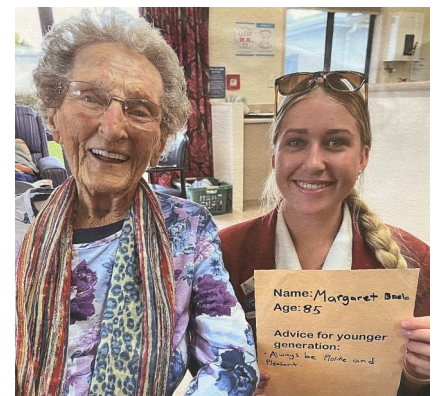 Name: Margaret
Age: 85
Advice for younger
generation:
• Always be Polite and
Pleasant